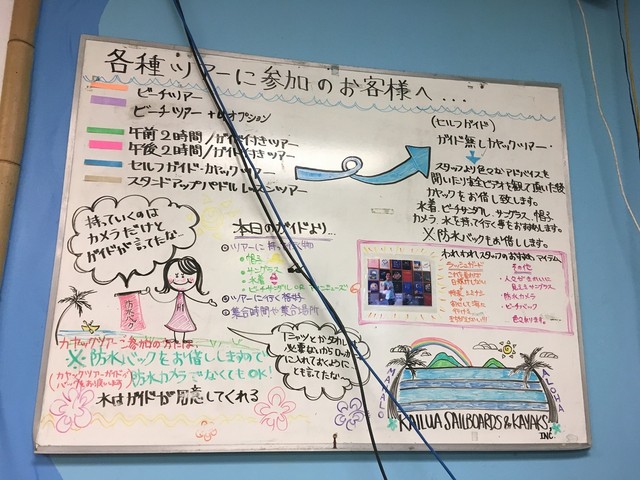 各種ツアーに参加のお客様へ...
ビーチツアー
ビーチツアー+αオプション
午前2時間/ガイド付きツアー
午後2時間/ガイド付きツアー
セルフガイド・カヤックツアー
スタードアップパドルレースンツアー
(セルフガイド)
ガイド無しカヤックツアー・
スタッフより色々なアドバイスを
聞いたり安全ビデオを観て頂いた後
カヤックをお借し致します。
水着、ビーチサンダル、サングラス、帽子
カメラ、水を持って行く事をおすすめします。
※防水バックもお借します。
持っていくのは
カメラだけと
ガイドが言ってたな…
防水バック
本日のガイドより…
①ツアーに持って行く物
帽子
サングラス
水着
②ツアーに行く格好
③集合時間や集合場所
われわれスタッフのおすすめアイテム
ラッシュガード
その他
防水カメラ
ビーチバック
色々あります。
カヤックツアーご参加の方には、
※防水バックをお借ししますので
(カヤックツアーガイドが
防水カメラでなくてもOK!
水はガイドが用意してくれる
Tシャツとかタオルは
必要ないからロッカー
に入れておくように
とも言ってたな…
MAHALO
ALOHA
KAILUA SAILBOARDS & KAYAKS
INC.